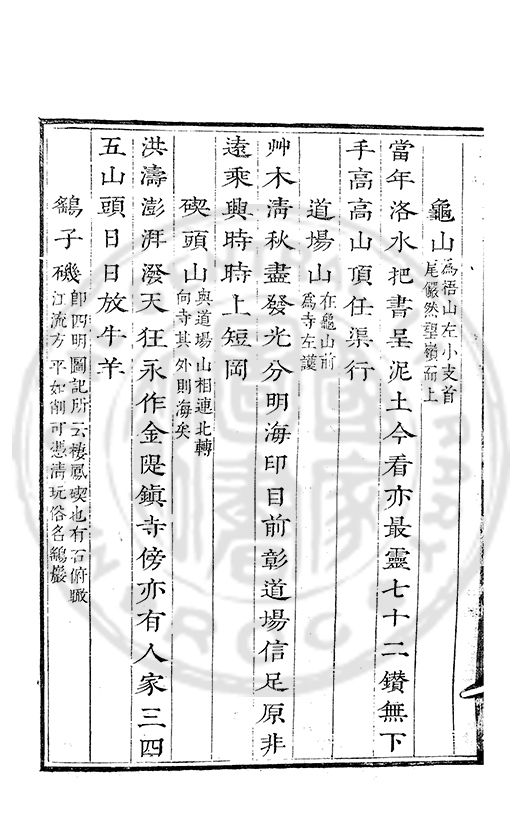 龜山為梧山左小支首尾儼然望嶺而上
當年洛水把書呈泥土今看亦最靈七十二鑚無下
手高高山頂任渠行
道場山在龜山前為寺左護
艸木清秋盡發光分明海印目前彰道場信足原非
遠乘興時時上短岡
碶頭山與道場山相連北轉向寺其外則海矣
洪濤澎湃潑天狂永作金隄鎮寺傍亦有人家三四
五山頭日日放牛羊
鷂子磯卽四明圖記所云棲鳳碶也有石俯瞰江流方平如削可憑清玩俗名鷂巖